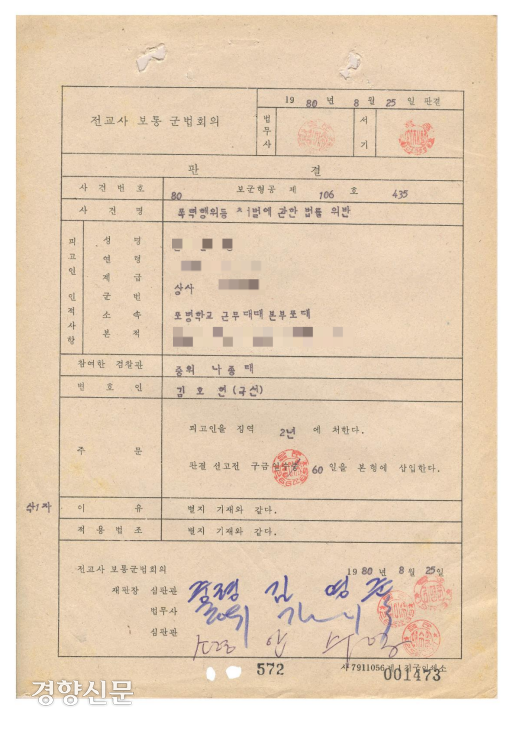 1980 년 8 월 25 일 판결
전교사 보통 군법회의
법무사
서기
판 결
사 건 번 호 80 보군형공 제 106 호 435
사 건 명 폭력행위등 처벌에 관한 법률 위반
피고인 인적사항
성 명
연 령
계 급 상사
군 번
소 속 포병학교 근무대대 본부포대
본 적
참여한 검찰관 중위
변 호 인 김 호 언 (국선)
주 문
피고인을 징역 2년 에 처한다.
판결 선고전 구금 60 일을 본형에 삽입한다.
이 유 별지 기재와 같다.
적 용 법 조 별지 기재와 같다.
전교사 보통군법회의 1980 년 8 월 25일
재판장 심판관 김
법무사
심판관
572
001473
경향신문